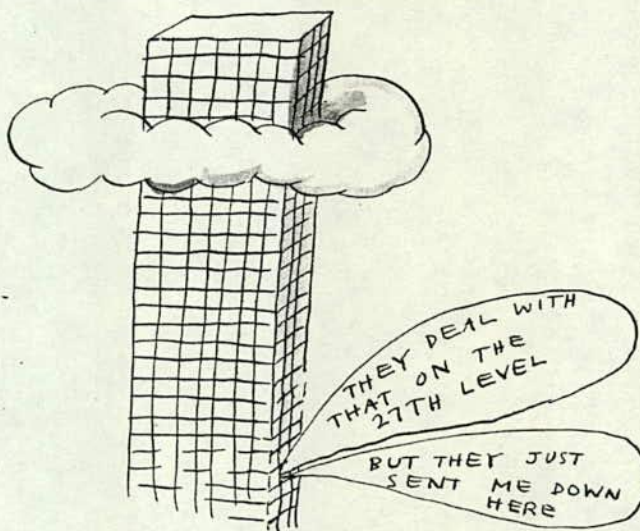 THEY DEAL WITH
THAT ON THE
27TH LEVEL
BUT THEY JUST
SENT ME DOWN
HERE